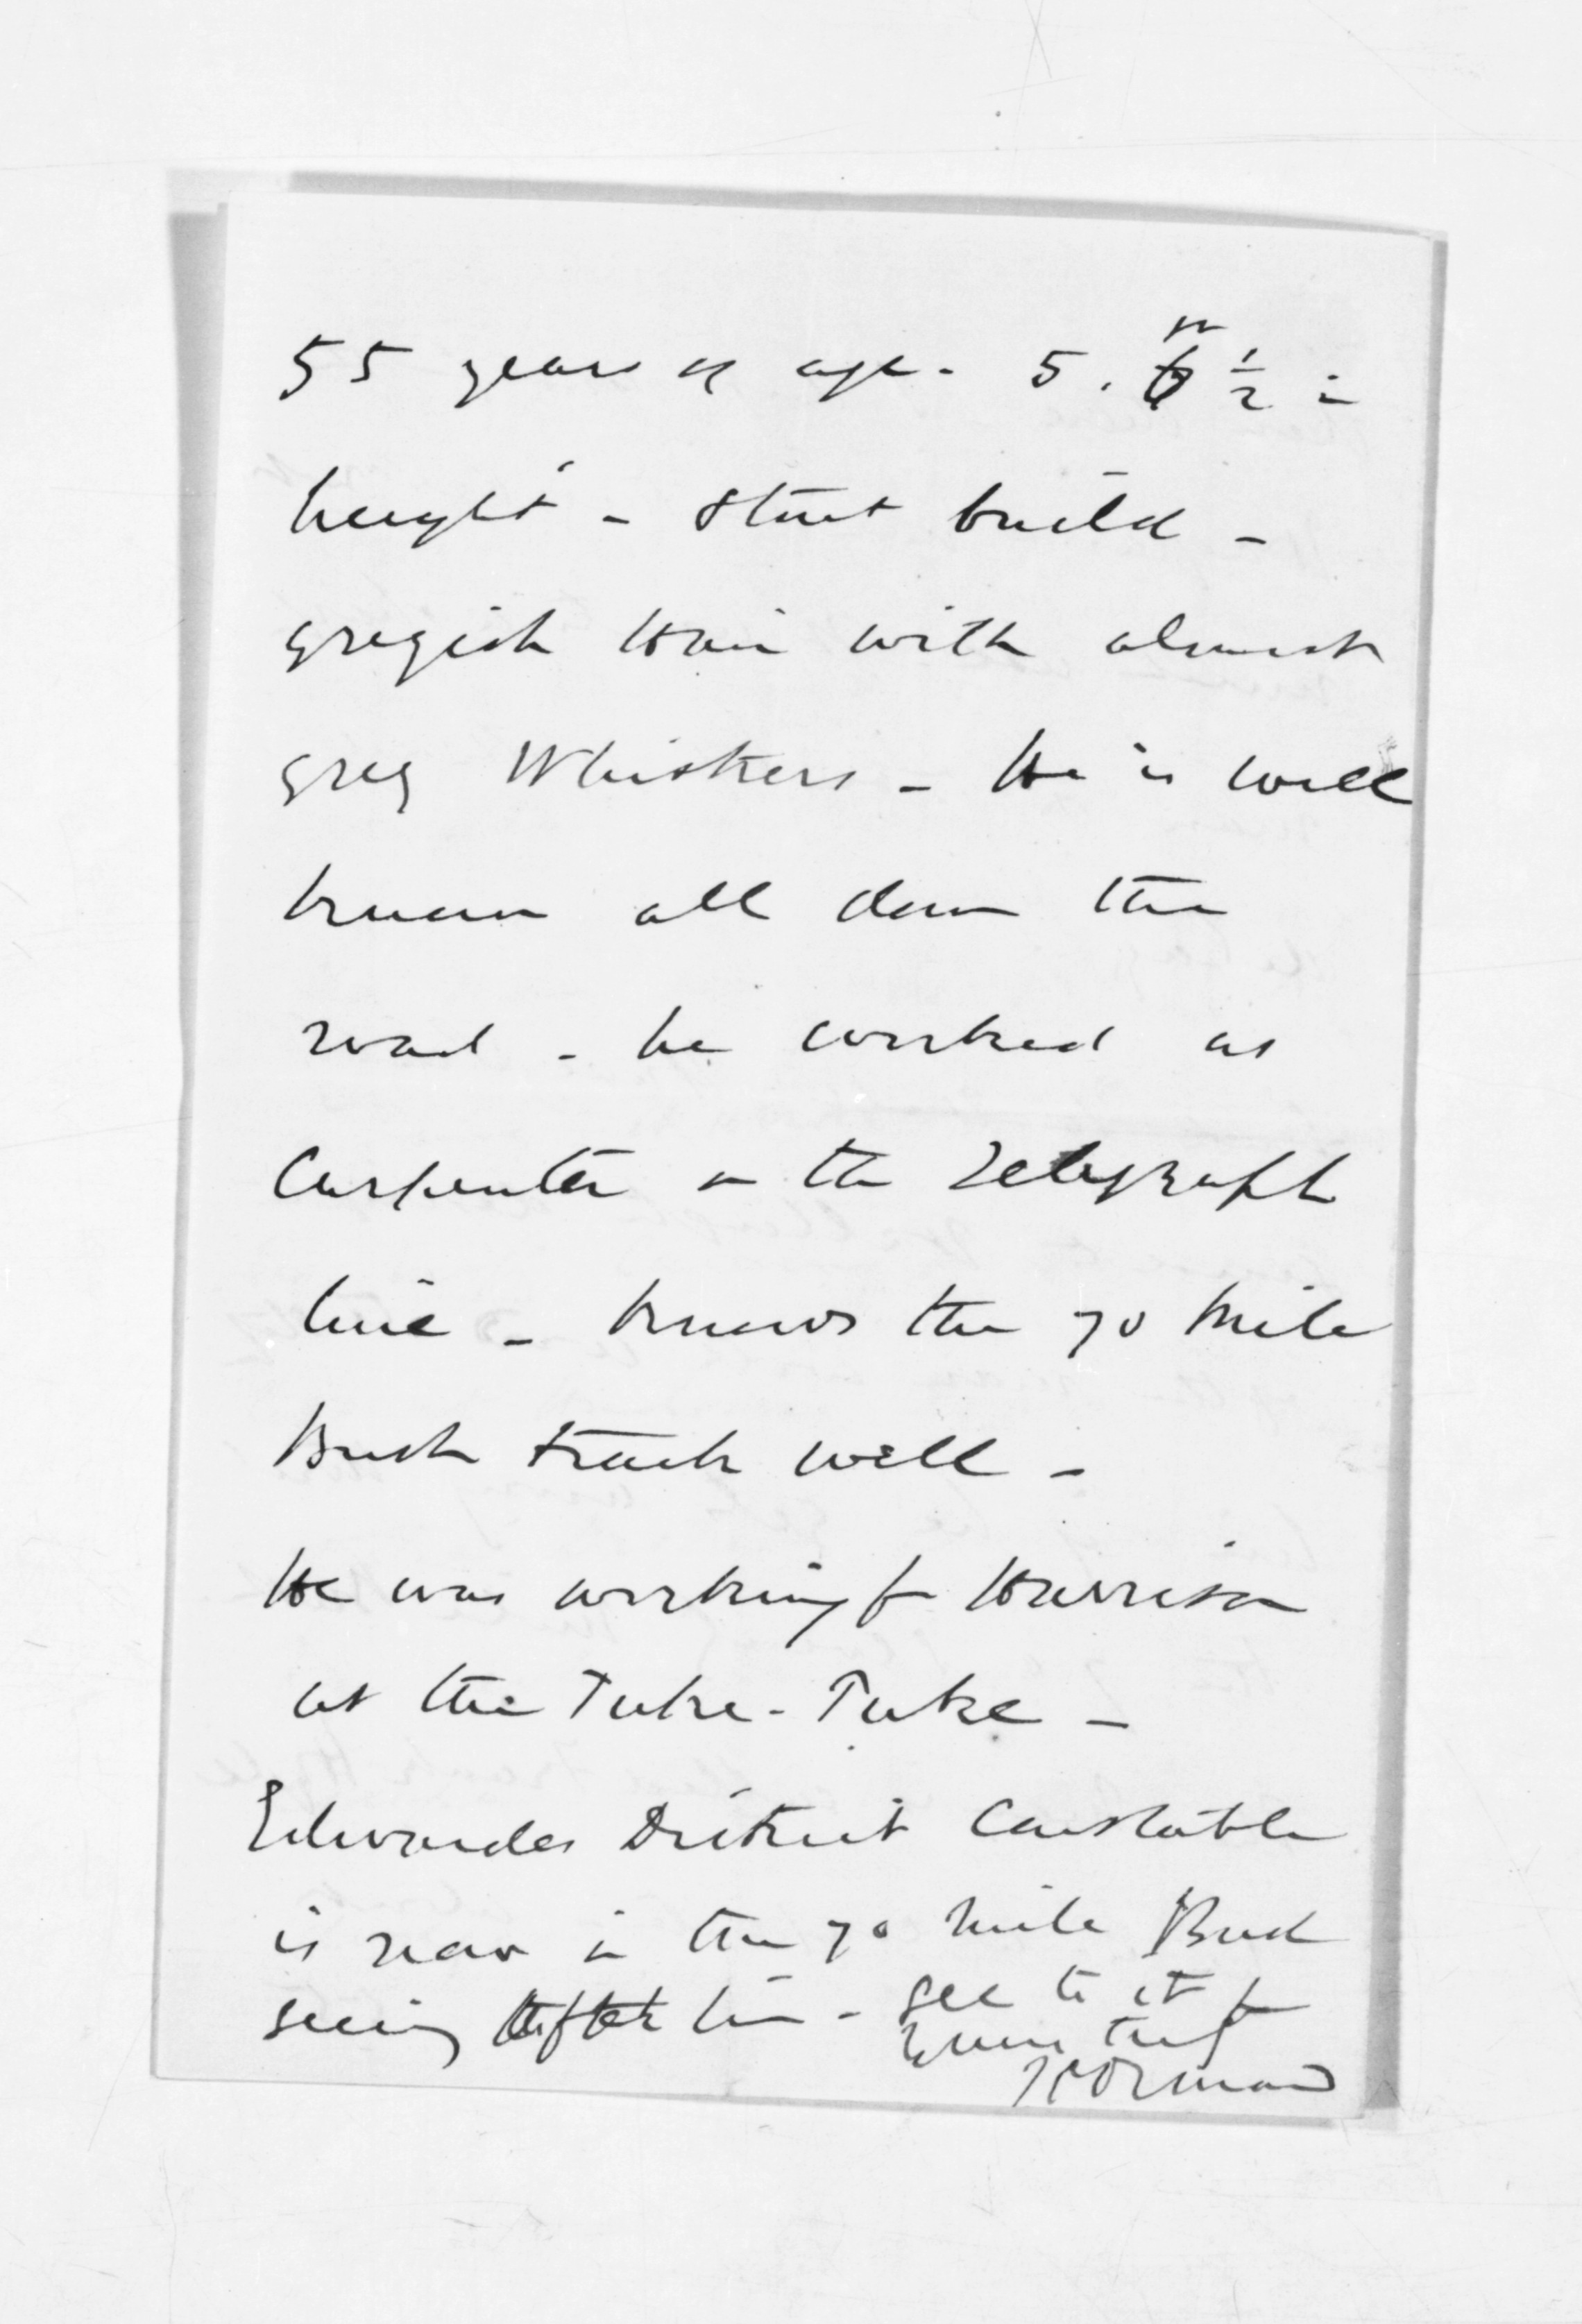 55 years of age - 5 . 6 1/2 in
height - stout build -
greyish Hair with almost
grey Whiskers - He is well
known all down the
road - he worked as
Carpenter on the Telegraph
line - knows the 70 Mile
Bush track well -
He was working for Harrison
at the Take-Take -
Edwardes District Constable
is now in the 70 mile Bush
seeing after him - see to it for
Yours truly